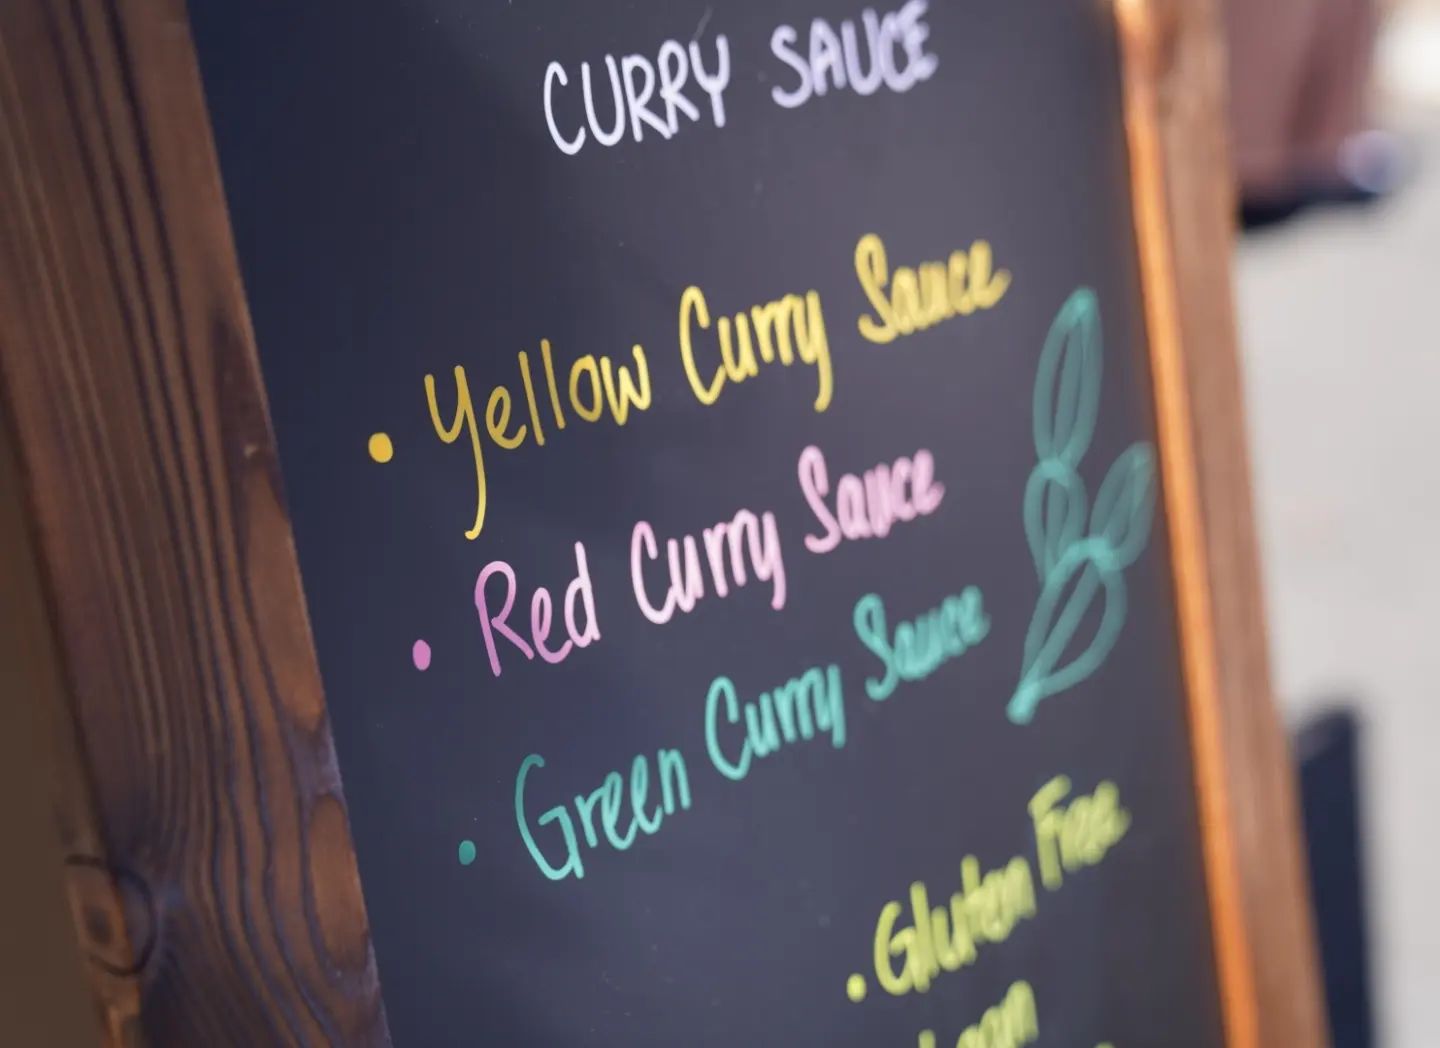 CURRY SAUCE
• Yellow Curry Sauce
• Red Curry Sauce
• Green Curry Sauce
• Gluten Free